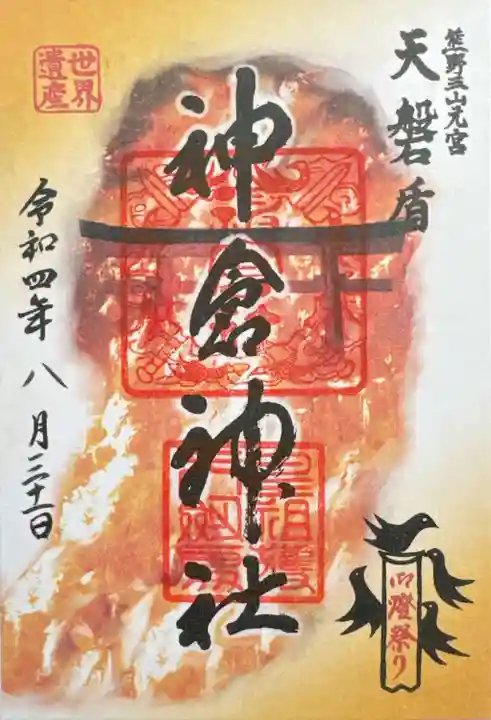 熊野三山元宮
天磐盾
世界
遺産
神倉神社
令和四年八月二十一日
御燈祭り